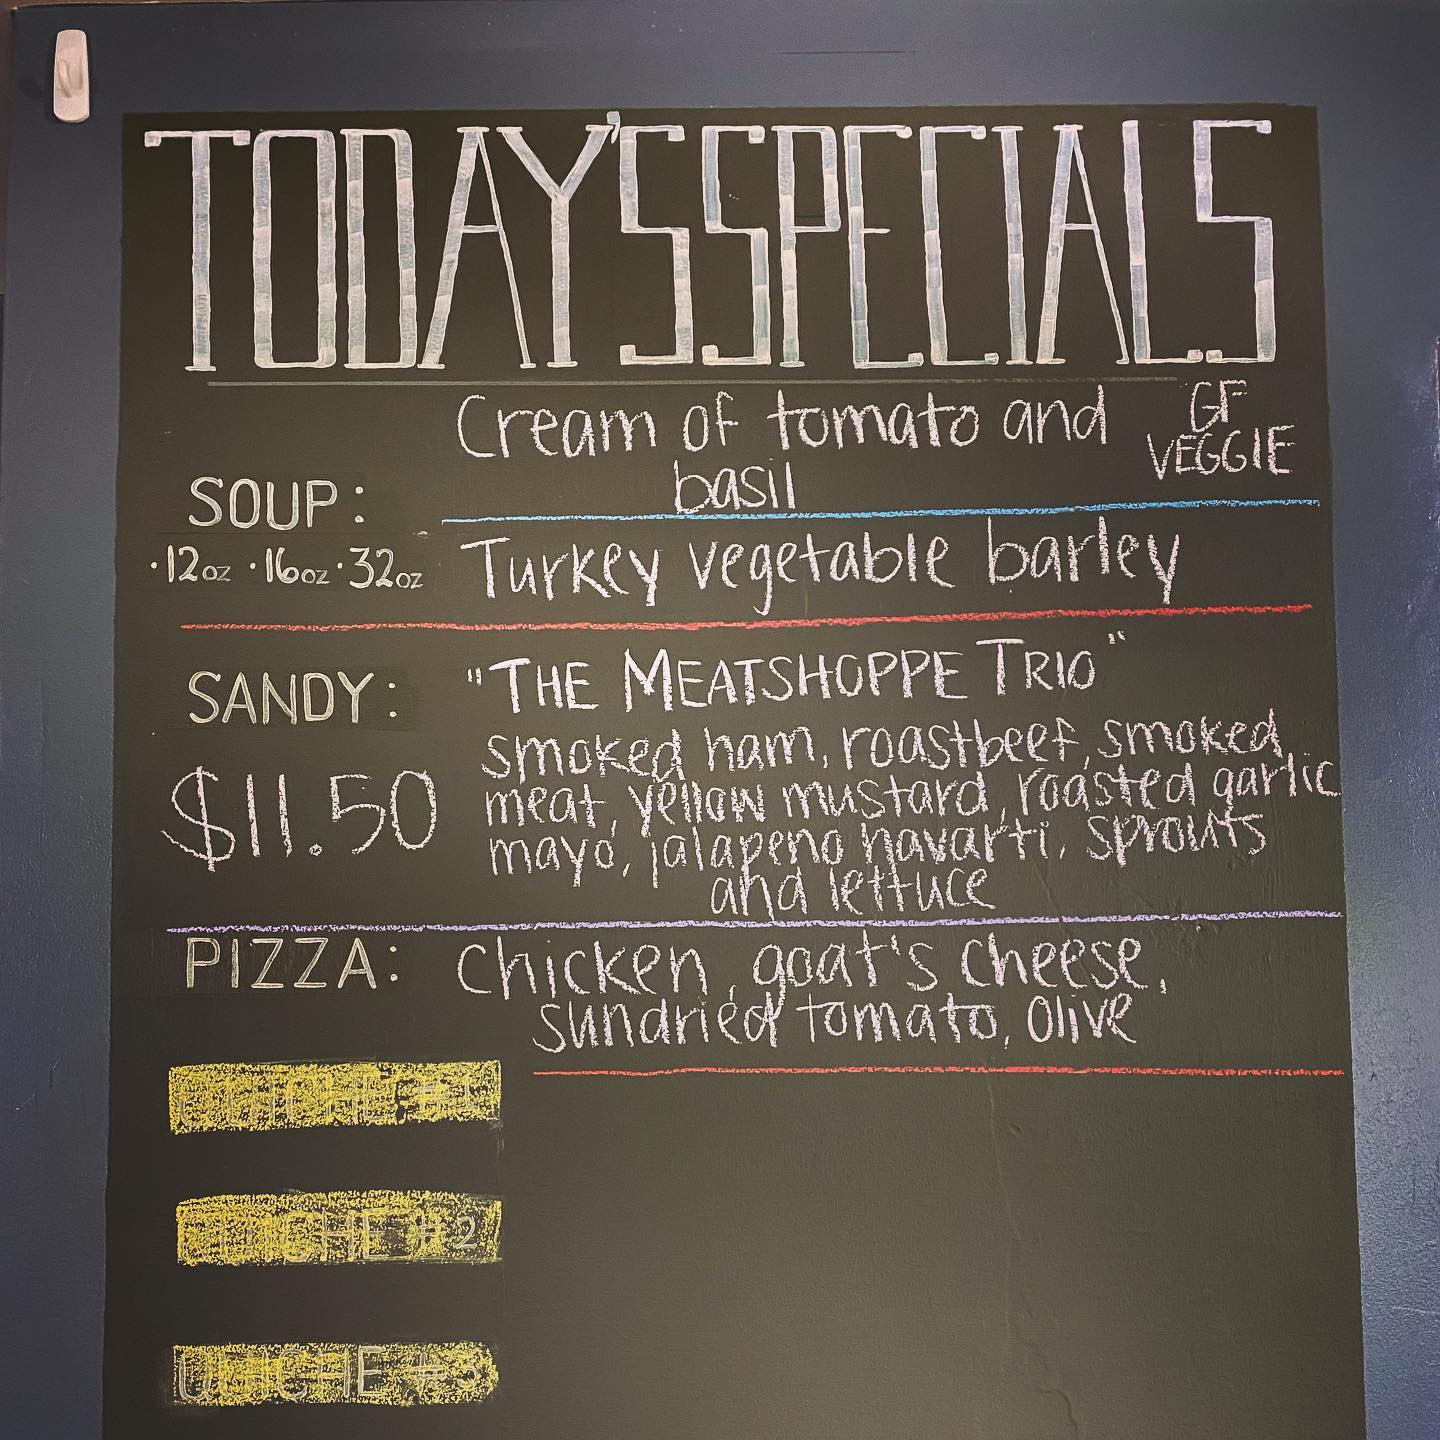 TODAY'S SPECIALS
Cream of tomato and GF
VEGGIE
basil
SOUP:
·12oz ·16oz ·32oz
Turkey vegetable barley
SANDY: "THE MEATSHOPPE TRIO"
smoked ham, roastbeef, smoked
$11.50 meat, yellow mustard, roasted garlic
mayo, jalapeno havarti, sprouts
and lettuce
PIZZA: Chicken, goat's cheese,
sundried tomato, olive
QUICHE #1
QUICHE #2
QUICHE #3